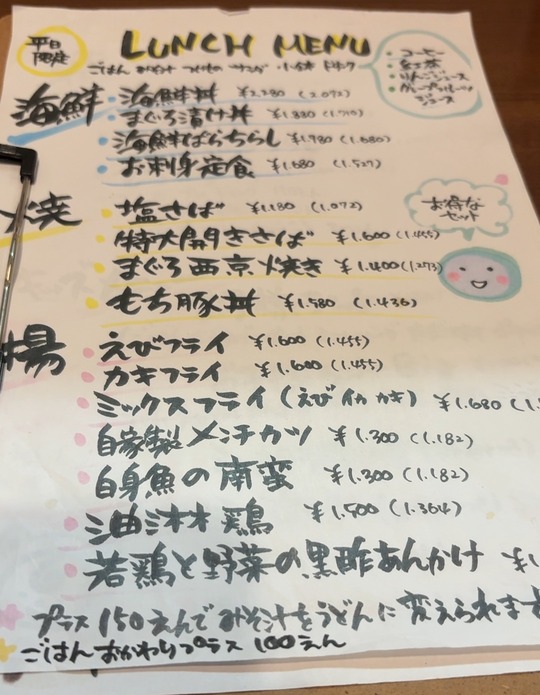 平日
限定
LUNCH MENU
ごはん みそ汁 つけもの サラダ 小鉢 ドリンク
・コーヒー
・りんごジュース
・グレープフルーツ
ジュース
海鮮
・海鮮丼 ¥2.280 (2.072)
・まぐろ漬け丼 ¥1.880 (1.710)
・海鮮ばらちらし ¥1.980 (1.680)
・お刺身定食 ¥1.680 (1.527)
焼
・塩さば ¥1.180 (1.072)
・特大開きさば ¥1.600 (1.455)
・まぐろ西京焼き ¥1.400 (1.273)
・もち豚丼 ¥1.580 (1.436)
お得な
セット
揚
・えびフライ ¥1.600 (1.455)
・カキフライ ¥1.600 (1.455)
・ミックスフライ (えび イカ カキ) ¥1.680 (1.5
・自家製メンチカツ ¥1.300 (1.182)
・白身魚の南蛮 ¥1.300 (1.182)
・油淋鶏 ¥1.500 (1.364)
・若鶏と野菜の黒酢あんかけ ¥1
プラス150えんでみそ汁をうどんに変えられます
ごはんおかわりプラス 100えん